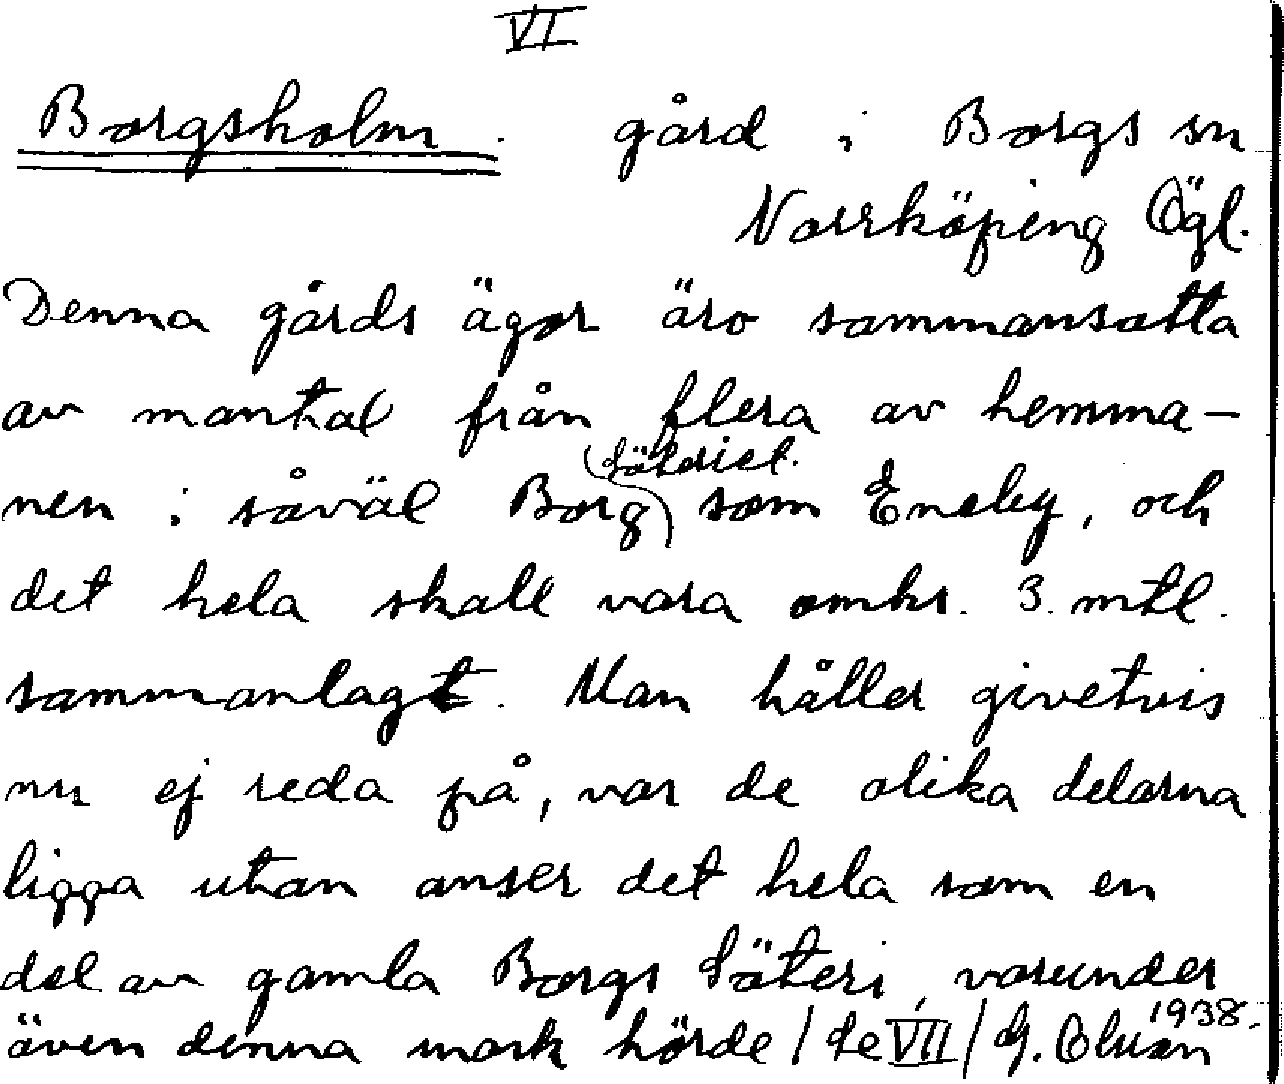 VI
Borgsholm. gård i Borgs sn
Norrköping Ögl.
Denna gårds ägor äro sammansatta
av mantal från flera av hemma-
säteriet.
nen i såväl Borg som Eneby, och
det hela skall vara omkr. 3. mtl.
sammanlagt. Man håller givetvis
nu ej reda på, var de olika delarna
ligga utan anser det hela som en
del av gamla Borgs säteri, varunder
även denna mark hörde / se VII / G. 1938.